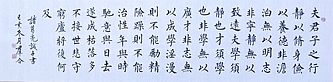 夫君子之行
靜以修身儉
以養德非澹
泊無以明志
非寧靜無以
致遠夫學須
靜也才須學
也非學無以
廣才非志無
以成學淫慢
則不能勵精
險躁則不能
治性年與時
馳意與日去
遂成枯落多
不接世悲守
窮廬將復何
及
諸葛亮誡子書